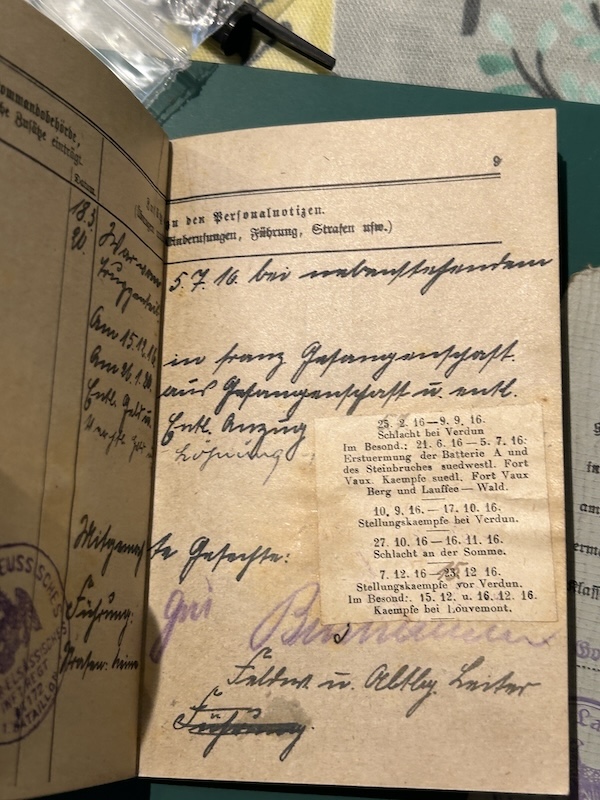 ommandobehörde,
che Zusätze einträgt.
Datum.
18.3.
20.
War vom
Truppenteil
Am 15.12.16
Am 26.1.20.
Entl. Geld u.
Mitgemach
Führung:
Strafen: keine
9
zu den Personalnotizen.
Einberufungen, Führung, Strafen usw.)
5.7.16. bei nebenstehendem
in franz Gefangenschaft.
aus Gefangenschaft u. entl.
Entl. Anzug
Löhnung
te Gefechte:
25. 2. 16—9. 9. 16.
Schlacht bei Verdun
Im Besond.: 21. 6. 16—5. 7. 16:
Erstuermung der Batterie A und
des Steinbruches suedwestl. Fort
Vaux. Kaempfe suedl. Fort Vaux
Berg und Lauffee—Wald.
10. 9. 16.—17. 10. 16.
Stellungskaempfe bei Verdun.
27. 10. 16—16. 11. 16.
Schlacht an der Somme.
7. 12. 16—15. 12 16.
Stellungskaempfe vor Verdun.
Im Besond.: 15. 12. u. 16. 12. 16.
Kaempfe bei Louvemont.
gut
Feldw. u. Abtlg. Leiter
Führung.
EUSSISCHES
METZ
I. BATAILLON